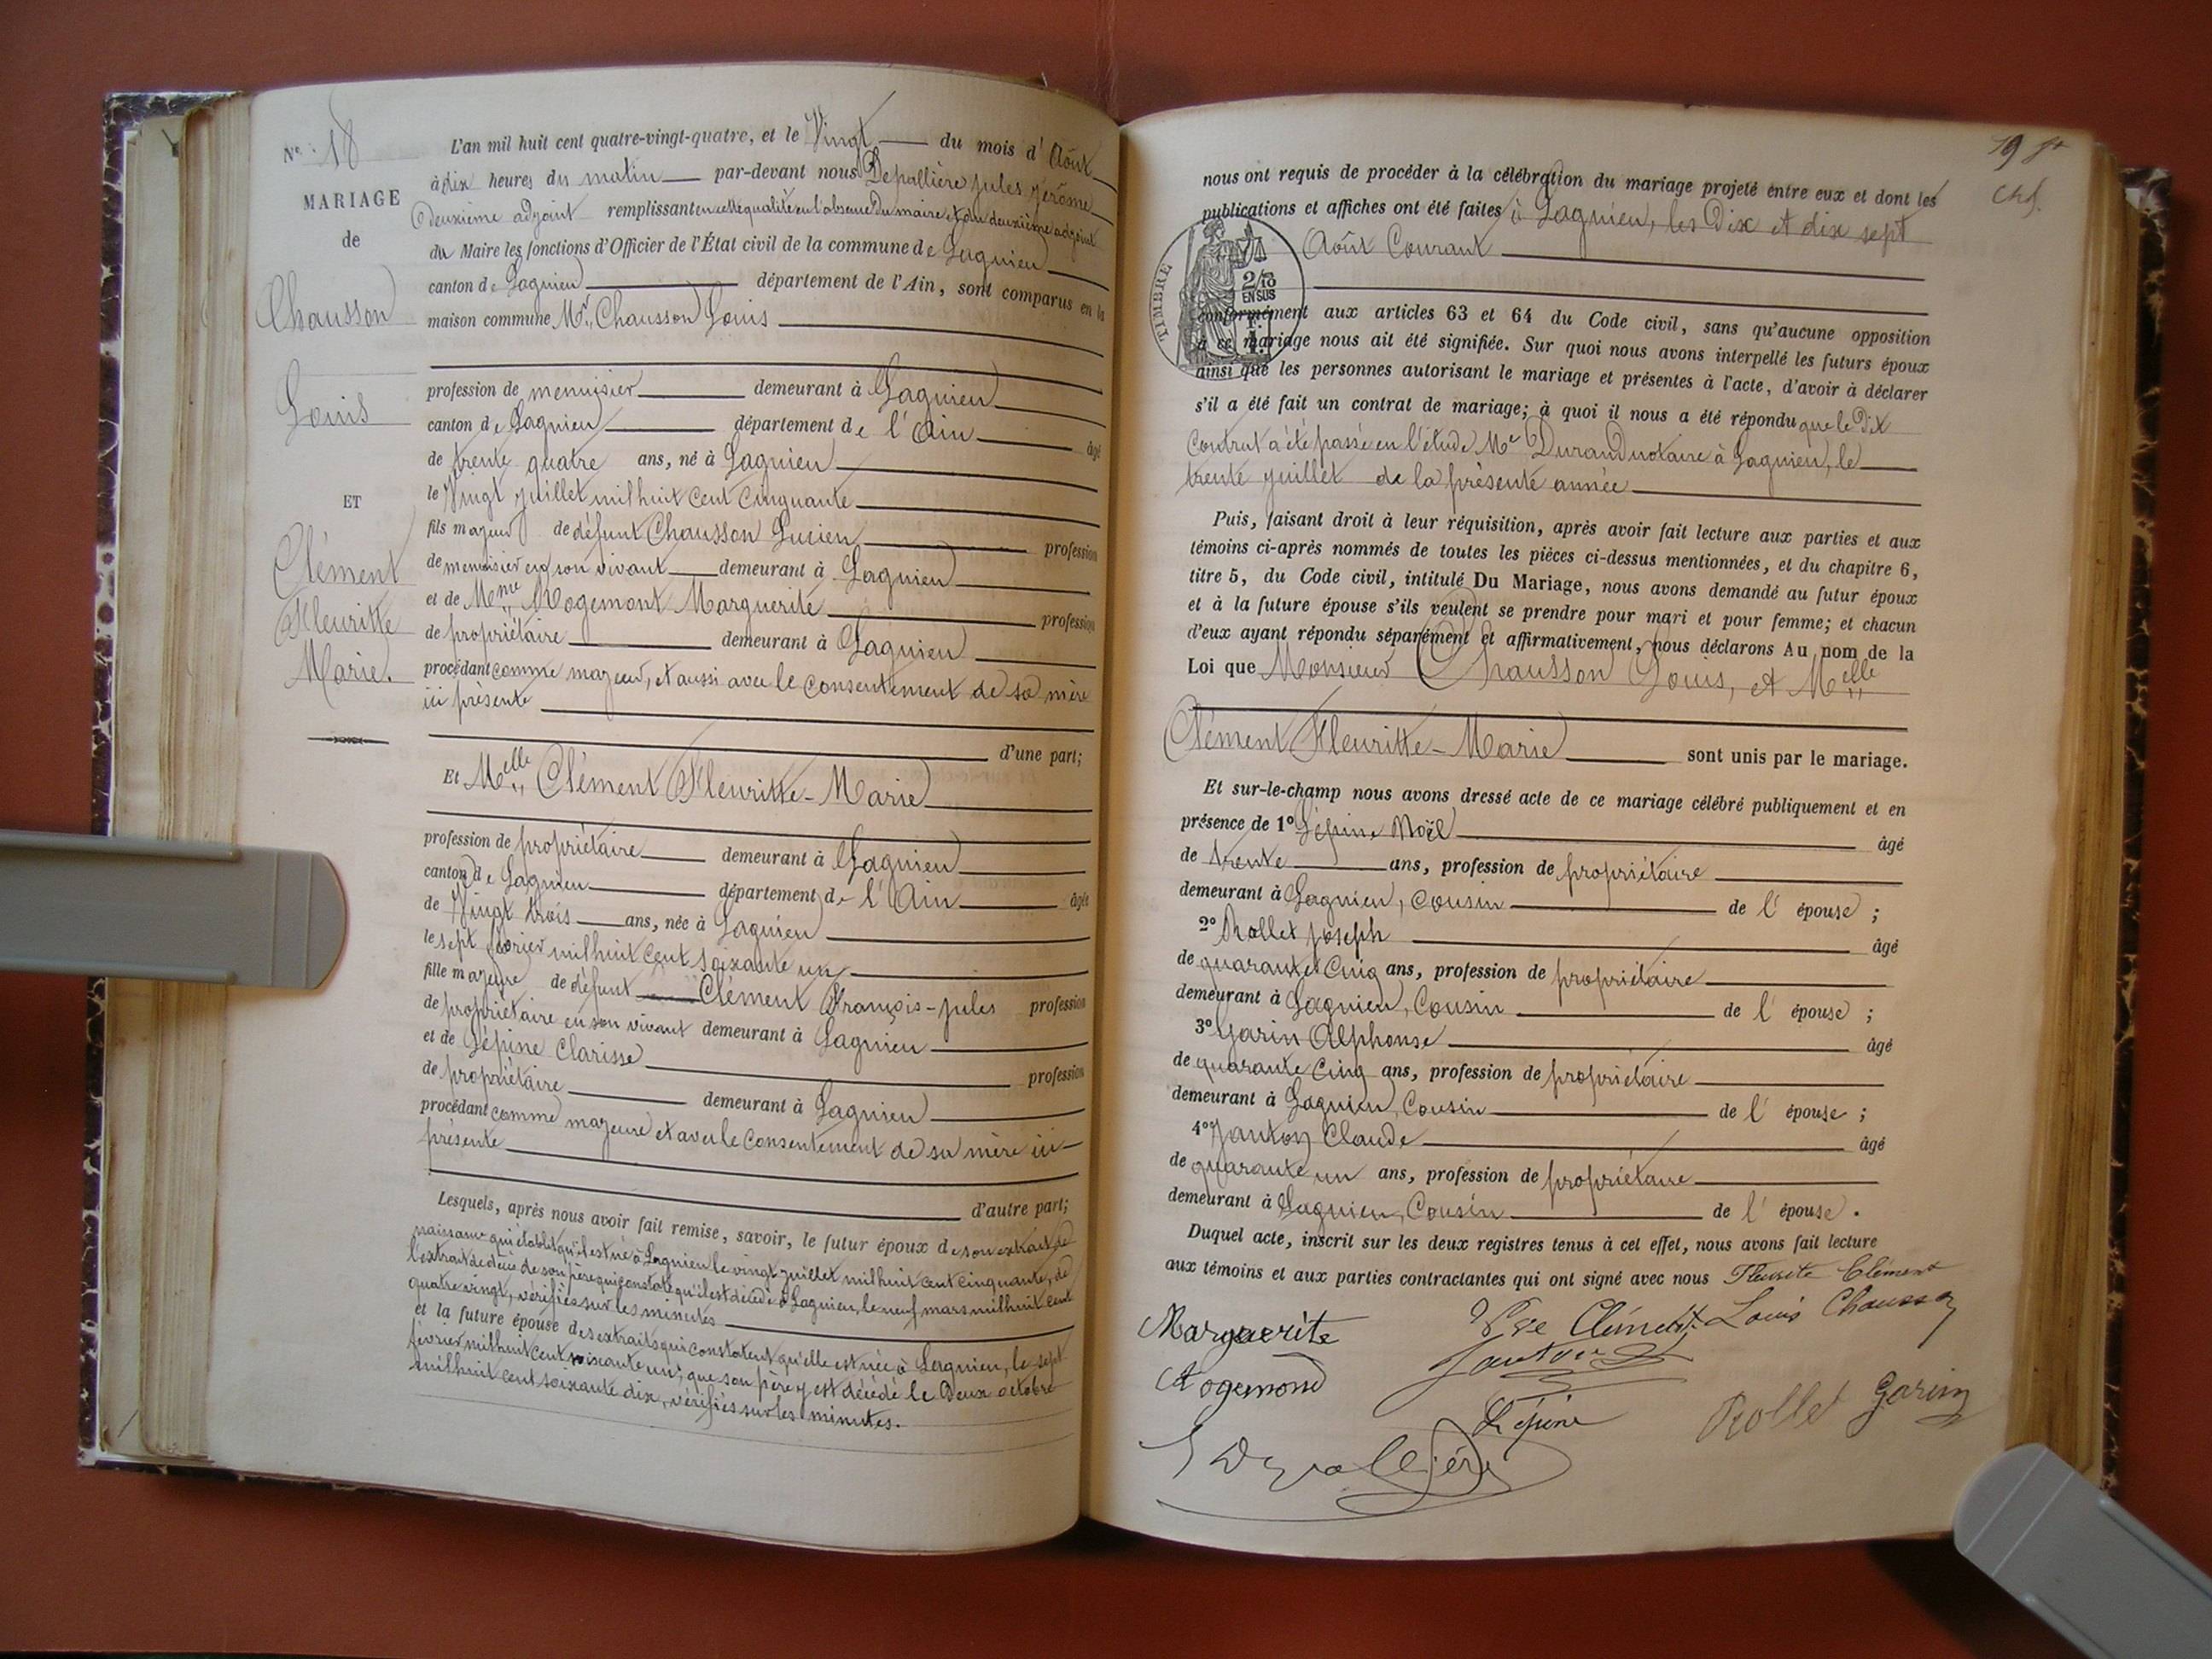 N° 18
MARIAGE
de
Chausson
Louis
ET
Clément
Fleuritte
Marie.
L'an mil huit cent quatre-vingt-quatre, et le Vingt du mois d'Août
à dix heures du matin par-devant nous Depallière Jules Jérôme
Deuxième adjoint remplissant en cette qualité en l'absence du maire et du deuxième adjoint
du Maire les fonctions d'Officier de l'État civil de la commune de Lagnieu
canton de Lagnieu département de l'Ain, sont comparus en la
maison commune Mr. Chausson Louis
profession de menuisier demeurant à Lagnieu
canton de Lagnieu département de l'Ain âgé
de trente quatre ans, né à Lagnieu
le Vingt juillet mil huit cent cinquante
fils majeur de défunt Chausson Lucien profession
de menuisier en son vivant demeurant à Lagnieu
et de Mme Rogemont Marguerite profession
de propriétaire demeurant à Lagnieu
procédant comme majeur, et aussi avec le consentement de sa mère
ici présente
d'une part;
Et Melle Clément Fleuritte-Marie
profession de propriétaire demeurant à Lagnieu
canton de Lagnieu département de l'Ain âgée
de Vingt trois ans, née à Lagnieu
le sept février mil huit cent soixante un
fille majeure de défunt Clément François-Jules profession
de propriétaire en son vivant demeurant à Lagnieu
et de Lépine Clarisse profession
de propriétaire demeurant à Lagnieu
procédant comme majeure et avec le consentement de sa mère ici
présente
d'autre part;
Lesquels, après nous avoir fait remise, savoir, le futur époux de son extrait de
naissance qui établit qu'il est né à Lagnieu le vingt juillet mil huit cent cinquante, de
l'extrait de décès de son père qui constate qu'il est décédé à Lagnieu, le neuf mars mil huit cent
quatre vingt, vérifiés sur les minutes
et la future épouse des extraits qui constatent qu'elle est née à Lagnieu, le sept
février mil huit cent soixante un; que son père y est décédé le Deux octobre
mil huit cent soixante dix, vérifiés sur les minutes.
19 ft
Chf.
nous ont requis de procéder à la célébration du mariage projeté entre eux et dont les
publications et affiches ont été faites à Lagnieu, les Dix et dix sept
Août Courant
TIMBRE
2/10
EN SUS
conformément aux articles 63 et 64 du Code civil, sans qu'aucune opposition
à ce mariage nous ait été signifiée. Sur quoi nous avons interpellé les futurs époux
ainsi que les personnes autorisant le mariage et présentes à l'acte, d'avoir à déclarer
s'il a été fait un contrat de mariage; à quoi il nous a été répondu que le Dit
Contrat a été passé en l'étude Me Durand notaire à Lagnieu, le
trente juillet de la présente année
Puis, faisant droit à leur réquisition, après avoir fait lecture aux parties et aux
témoins ci-après nommés de toutes les pièces ci-dessus mentionnées, et du chapitre 6,
titre 5, du Code civil, intitulé Du Mariage, nous avons demandé au futur époux
et à la future épouse s'ils veulent se prendre pour mari et pour femme; et chacun
d'eux ayant répondu séparément et affirmativement, nous déclarons Au nom de la
Loi que Monsieur Chausson Louis, et Melle
Clément Fleuritte-Marie sont unis par le mariage.
Et sur-le-champ nous avons dressé acte de ce mariage célébré publiquement et en
présence de 1° Lépine Noël âgé
de trente ans, profession de propriétaire
demeurant à Lagnieu, Cousin de l'épouse;
2° Rollet Joseph âgé
de quarante cinq ans, profession de propriétaire
demeurant à Lagnieu, Cousin de l'épouse;
3° Garin Alphonse âgé
de quarante cinq ans, profession de propriétaire
demeurant à Lagnieu, Cousin de l'épouse;
4° Janton Claude âgé
de quarante un ans, profession de propriétaire
demeurant à Lagnieu, Cousin de l'épouse.
Duquel acte, inscrit sur les deux registres tenus à cet effet, nous avons fait lecture
aux témoins et aux parties contractantes qui ont signé avec nous Fleurite Clément
Marguerite Vve Clément Louis Chausson
Rogemond Janton
Lépine Rollet Garin